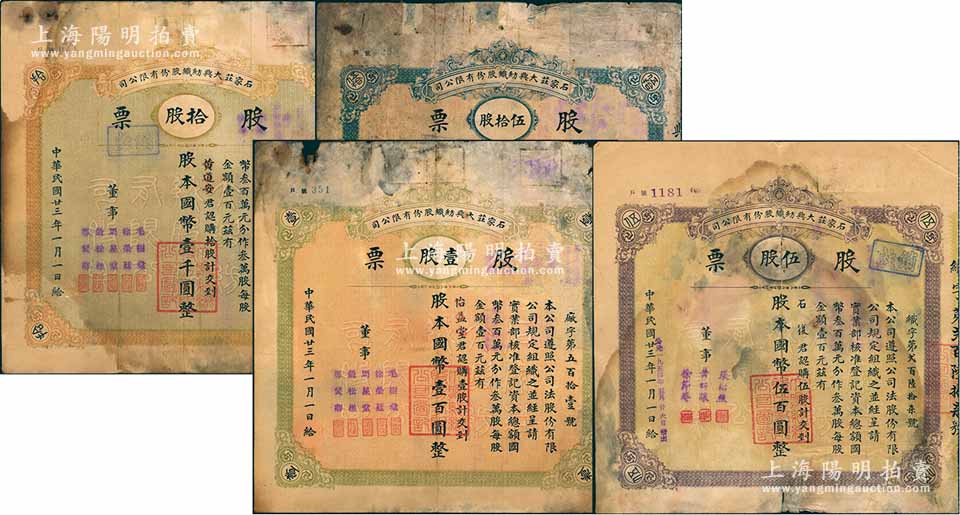 上海陽明拍賣
www.yangmingauction.com
拾
石家莊大興紡織股份有限公司
股 拾股 票
幣叁百萬元分作叁萬股每股
金額壹百元茲有
黃道安君認購拾股計交到
股本國幣壹千圓整
董事
毛樹棠
徐榮廷
周星棠
中華民國廿三年一月一日給
石家莊大興紡織股份有限公司
股 伍拾股 票
戶號 351
石家莊大興紡織股份有限公司
股 壹股 票
廠字第五百拾壹號
本公司遵照公司法股份有限
公司規定組織之並經呈請
實業部核准登記資本總額國
幣叁百萬元分作叁萬股每股
金額壹百元茲有
怡益堂君認購壹股計交到
股本國幣壹百圓整
董事
毛樹棠
徐榮廷
周星棠
中華民國廿三年一月一日給
戶號 1181
石家莊大興紡織股份有限公司
股 伍股 票
本公司遵照公司法股份有限
公司規定組織之並經呈請
實業部核准登記資本總額國
幣叁百萬元分作叁萬股每股
金額壹百元茲有
石俊君認購伍股計交到
股本國幣伍百圓整
董事
中華民國廿三年一月一日給
上海陽明拍賣
www.yangmingauction.com
上海陽明拍賣
www.yangmingauction.com